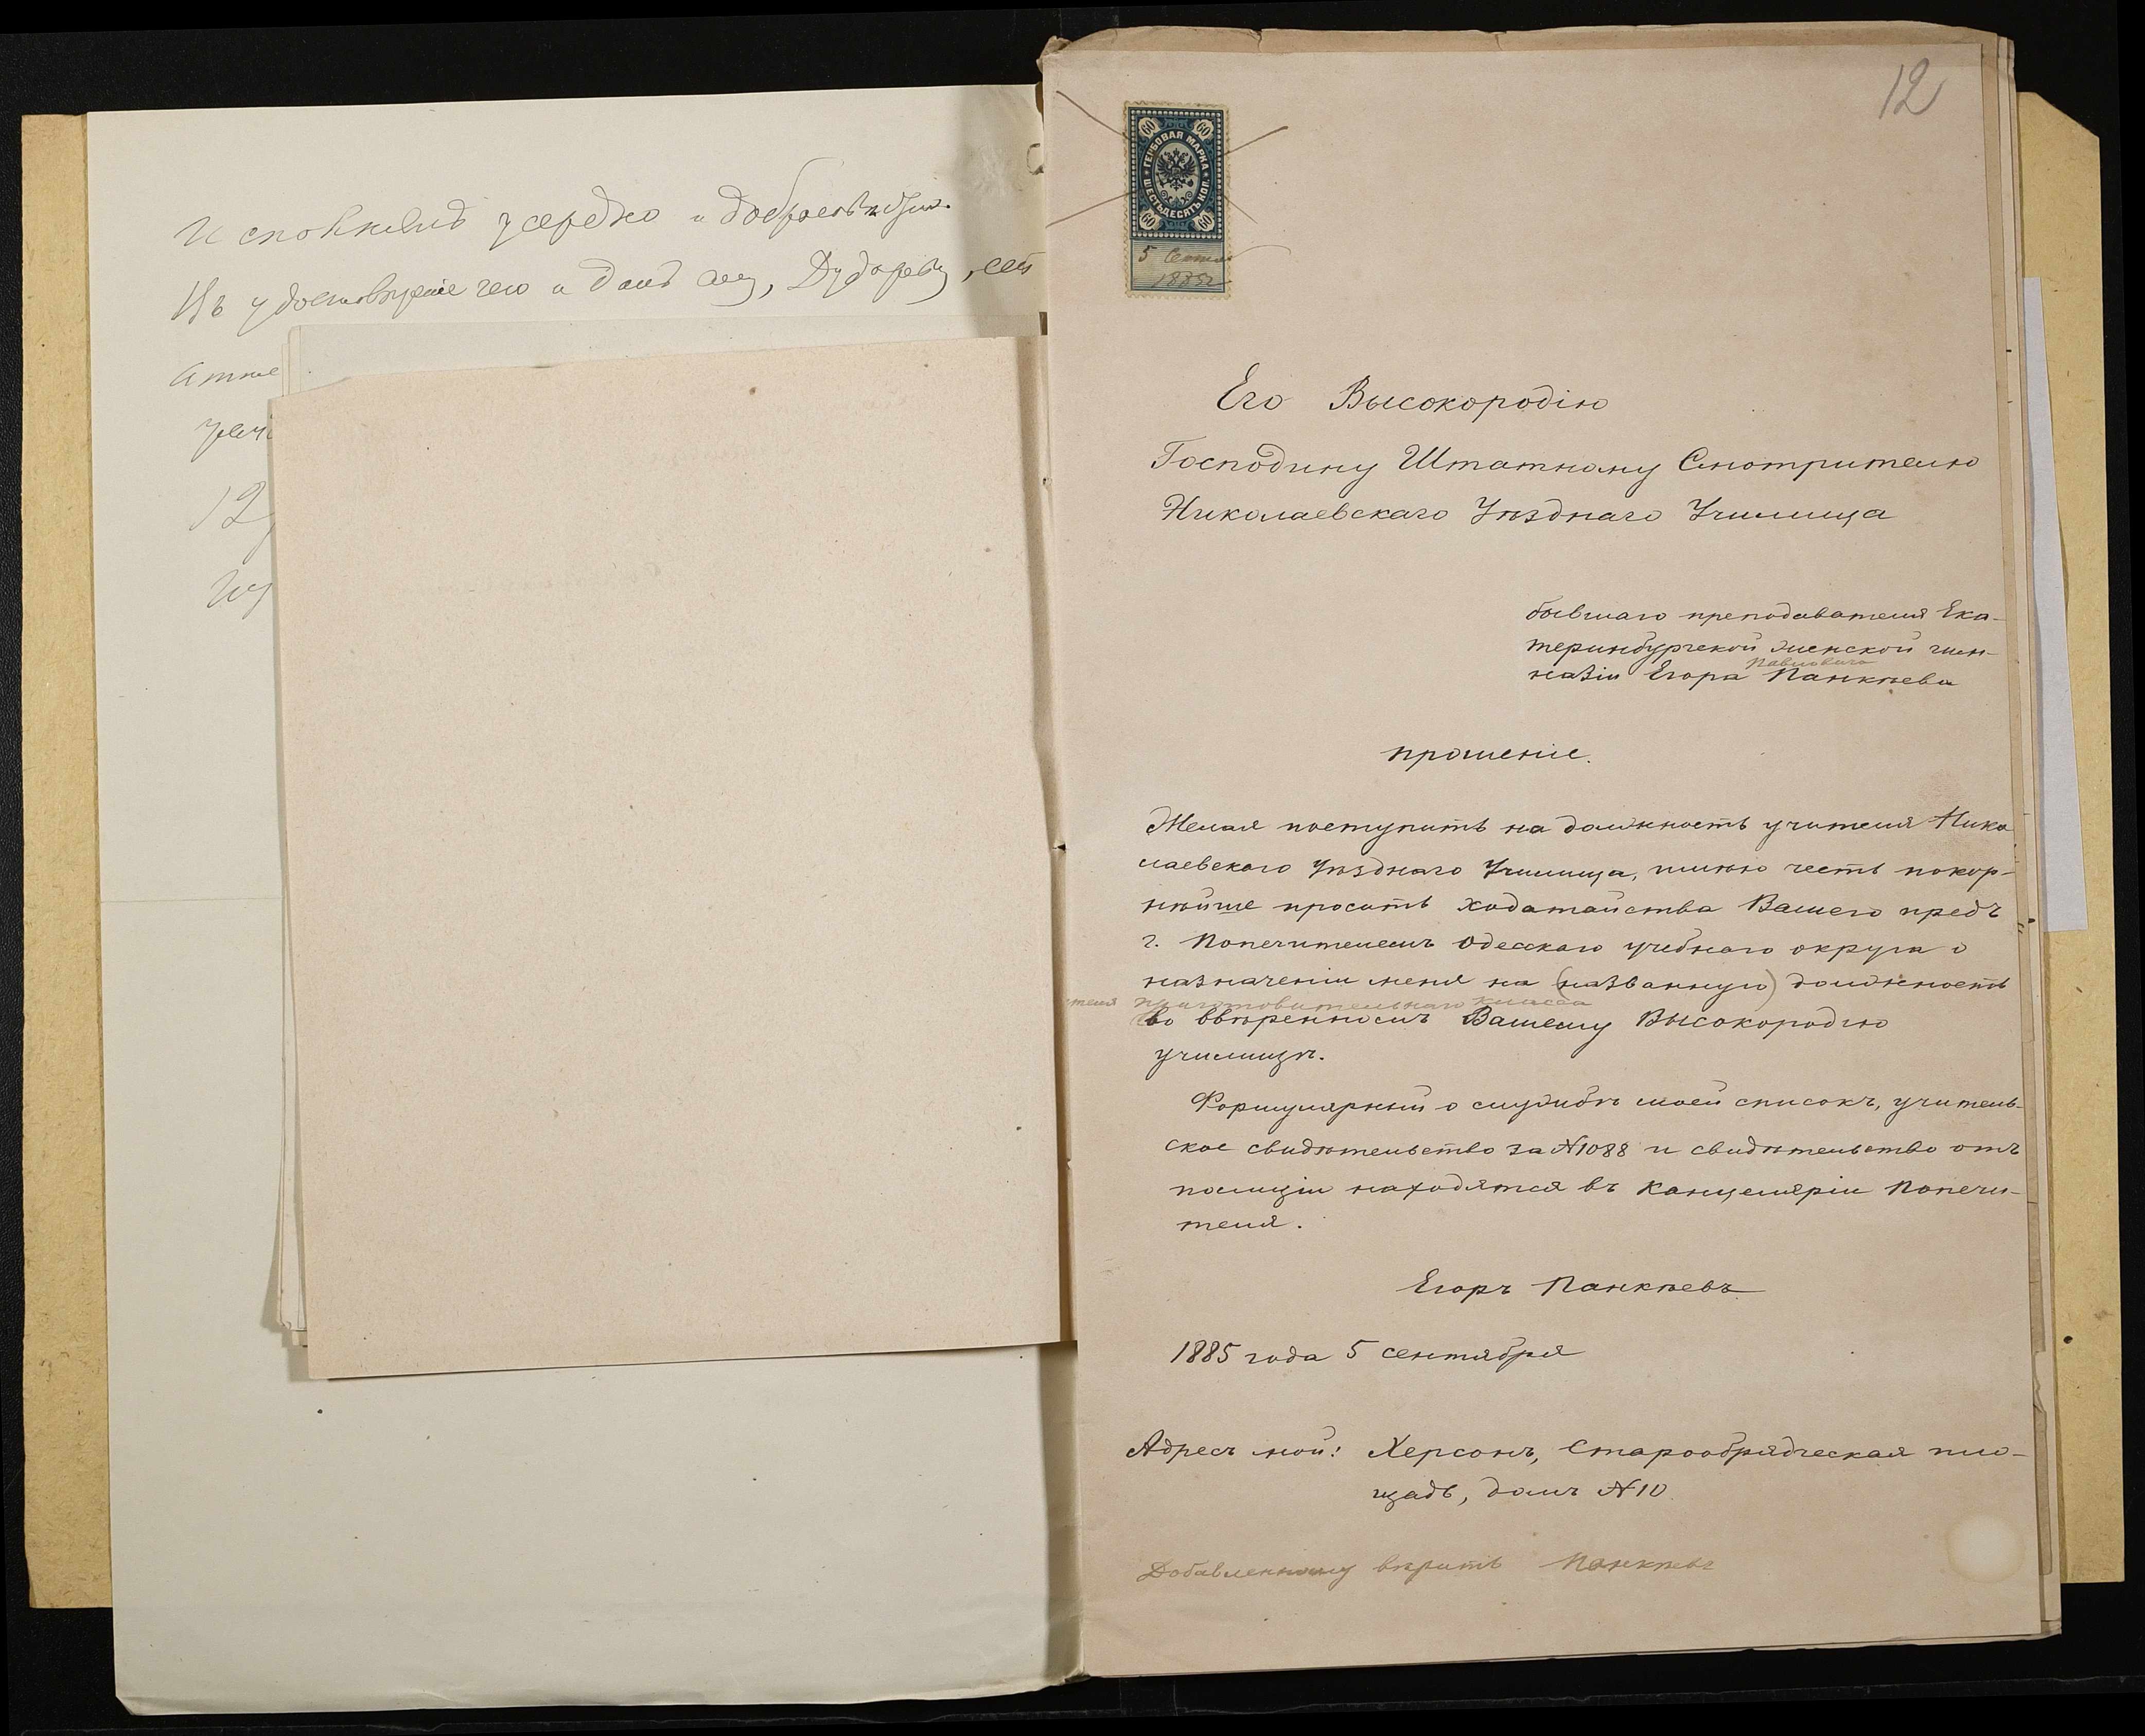 исполнялъ усердно и добросовѣстно.
Въ удостовѣреніе чего и данъ ему, Дудареву, сей
атте
12
12
60 60
ГЕРБОВАЯ МАРКА
ШЕСТЬДЕСЯТЪ КОП.
60 60
5 Сентяб
1885г
Его Высокородію
Господину Штатному Смотрителю
Николаевскаго Уѣзднаго Училища
бывшаго преподавателя Ека-
теринбургской женской гим-
Павловича
назіи Егора Панкѣева
прошеніе.
Желая поступить на должность учителя Нико
лаевскаго Уѣзднаго Училища, имѣю честь покор-
нѣйше просить ходатайства Вашего предъ
г. Попечителемъ Одесскаго учебнаго округа о
назначеніи меня на (названную) должность
теля приготовительнаго класса
во ввѣренномъ Вашему Высокородію
училищѣ.
Формулярный о службѣ моей списокъ, учитель-
ское свидѣтельство за №1088 и свидѣтельство отъ
полиціи находятся въ Канцеляріи Попечи-
теля.
Егоръ Панкѣевъ
1885 года 5 сентября
Адресъ мой: Херсонъ, Старообрядческая пло-
щадь, домъ №10
Добавленному вѣрить Панкѣевъ